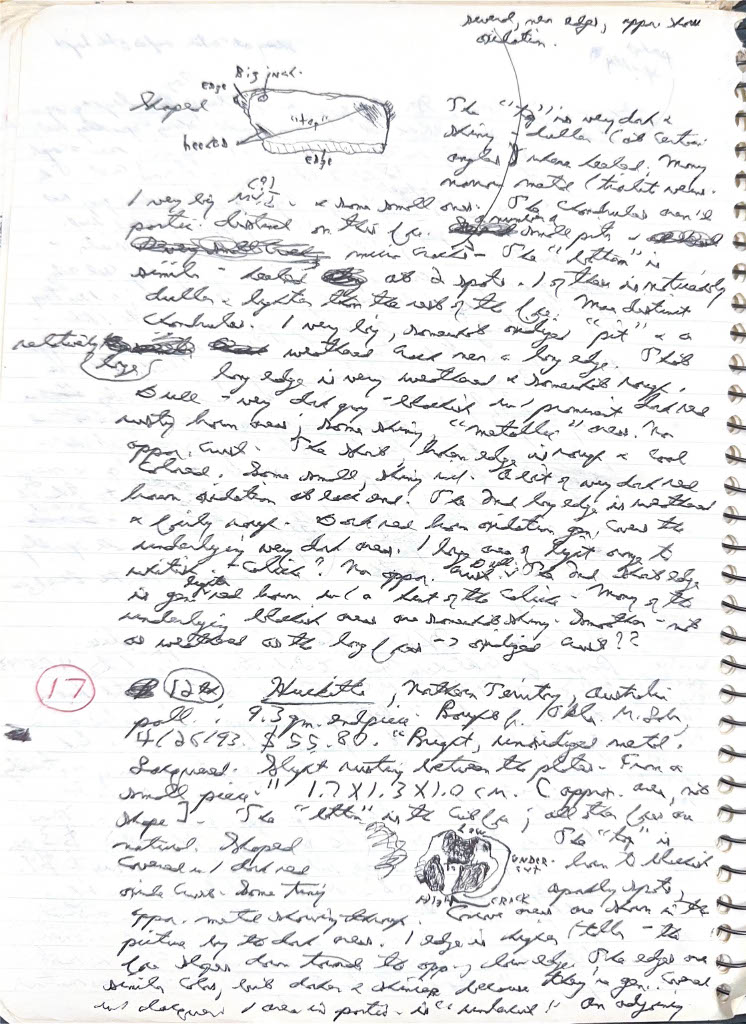 several, near edges, appar. show
oxidation.
Big incl.
edge
Shaped
"top"
heated
edge
The "top" is very dark &
shiny - duller (at certain
angles) where heated. Many
narrow metal (troilite) veins.
(?)
1 very big & some small ones. The Chondrules aren't
partic. distinct on this face. a number of small pits &
micro cracks - The "bottom" is
similar - heated at 2 spots. 1 of them is noticeably
duller & lighter than the rest of the face. More distinct
Chondrules. 1 very big, somewhat oxidized "pit" & a
relatively weathered crack near a long edge. That
(long)
long edge is very weathered & somewhat rough.
Dull - very dark gray - blackish w/ prominent dark red
rusty brown areas; some shiny "metallic" areas. No
appar. crust. The short, broken edge is rough & coal
colored. Some small, shiny incl. A bit of very dark red
brown oxidation at each end. The 2nd long edge is weathered
& fairly rough. Dark red brown oxidation gen. covers the
underlying very dark areas. 1 large area of light orange to
whitish - Caliche? No appar. crust. Dull. The 2nd short edge
is gen. lighter red brown w/ a hint of the Caliche - Many of the
underlying blackish areas are somewhat shiny. Smoother - not
as weathered as the long faces -> oxidized crust??
17
12 Huckitta, Northern Territory, Australia
pall.: 9.3 gm. endpiece. Bought f.
4/26/93. $55.80. "Bright, unoxidized metal.
Lacquered. Slight rusting between the plates. From a
small piece." 1.7 X 1.3 X 1.0 cm. [appar. area, not
shape]. The "bottom" is the cut face; all other faces are
natural. Shaped
Low
The "top" is
Covered w/ dark red
UNDER-
CUT
brown to blackish
oxide crust. Some tiny
High
CRACK
spots,
appar. metal showing through. Concave areas are shown in the
picture by the dark areas. 1 edge is higher/taller - the
face slopes down toward the opp., low edge. The edges are
similar color, but darker & shinier because they're gen. covered
w/ lacquer. 1 area in partic. is "undercut". An adjoining